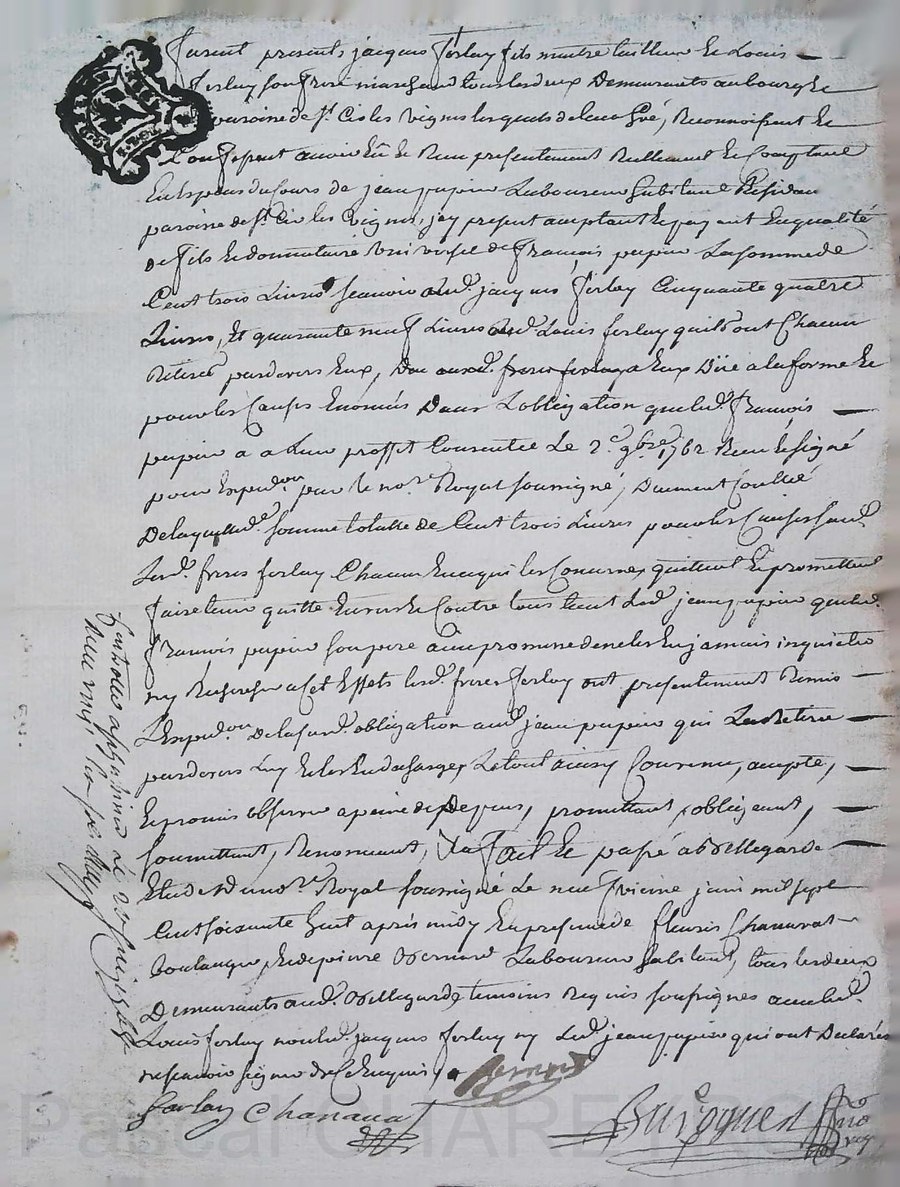 furent presents jacques ferlay fils maitre tailleur et Louis
ferlay son frere marchand tous les deux Demeurants au bourg et
paroisse de st Cir les vignes lesquels de leur Gré, Reconnoissent et
Confessent avoir Eû et Reçu presentement Reellement et Comptant
En Especes du Cours de jean papon Laboureur habitant Residan
paroisse de st Cir les vignes, jcy present acceptant et payant En qualité
de fils et donnataire universel de françois papon La somme de
Cent trois Livres scavoir Led. jacques ferlay Cinquante quatre
Livres, Et quarante neuf Livres Led. Louis ferlay qu'ils ont Chacun
Retirée pardevers Eux, Due ausd. freres ferlay a Eux Düe a la forme et
pour les Causes Enoncés Dans L'obligation que led. françois
papon a a Leur proffit Consentie Le 2e 9bre 1762 Reçu et signé
pour Expedon par le nore Royal soussigné, Duement Controllé
De laquelle somme totalle de Cent trois Livres pour les Causes susd.
Lesd. freres ferlay Chacun En ce qui les Concerne, quittent Et promettent
faire tenir quitte Envers Et Contre tous tant Led. jean papon que led.
françois papon son pere avec promesse de ne les En jamais inquietter
ny Rechercher a Cet Effet Lesd. freres ferlay ont presentement Remis
L'Expedon De la susd. obligation aud. jean papon qui La Retire
pardevers Luy Et les En decharge, Le tout ainsy Convenu, accepté,
Et promis observer a peine de Depens, promettant, obligeant,
soumettant, Renonçant, &a fait Et passé a Bellegarde
Etude Du nore Royal soussigné Le neufvieme janv mil sept
Cent soixante huit après midy En presence de fleuris Chanavat
boulanger, Et de pierre Bernard Laboureur habitant, tous les deux
Demeurants aud. Bellegarde temoins Requis soussignés avec led.
Louis ferlay non led. jacques ferlay ny Led. jean papon qui ont Declarés
ne scavoir signer de Ce Enquis,
ferlay Chanavat Bernard
Pascal CHAREYRON